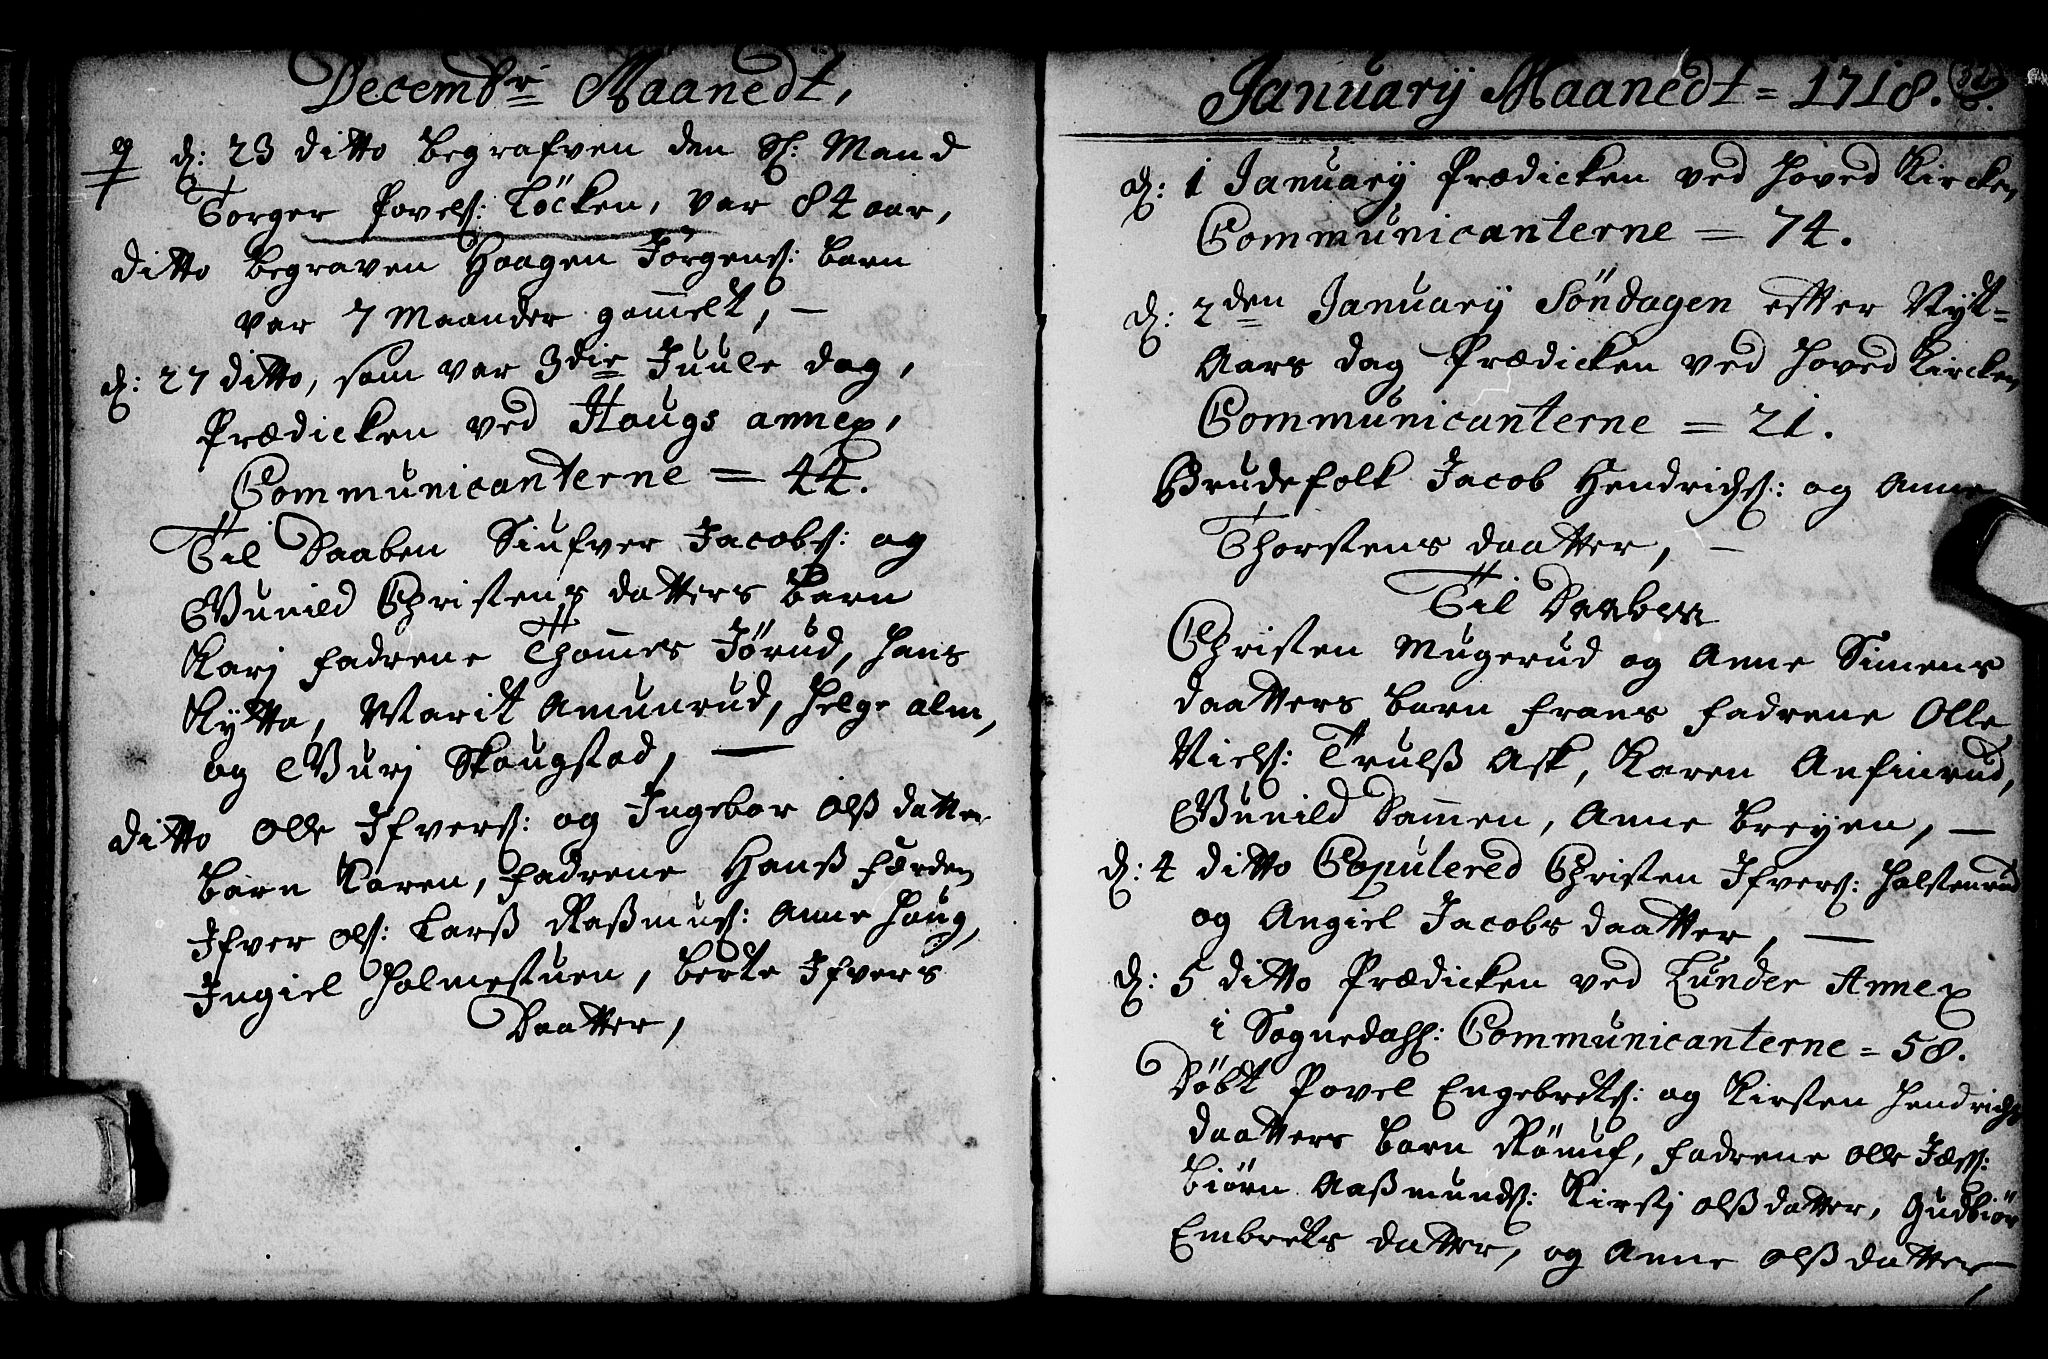 Decembr Maanedt,
d: 23 ditto begrafven den Sl: Mand
Torger Povels: Löcken, var 84 aar,
ditto begraven Haagen Jörgens: barn
var 7 Maander gam̄elt, —
d: 27 ditto, som var 3die Juule dag,
Prædicken ved Haugs annex,
Communicanterne = 44.
Til Daaben Siufver Jacobs: og
Gunild Christens datters Barn
Karj fadrene Thom̄es Jörud, Hans
Kytta, Marit Amunrud, Helge alm,
og Gurj Skougstad, —
ditto Olle Ifvers: og Ingebor Olß datter
barn Karen, fadrene Hanß Færden
Ifver Ols: Larß Raßmus: Anne Houg,
Ingiel Holmestuen, berte Ifvers
Daatter,
January Maanedt = 1718.
d: 1 January Prædicken ved Hoved Kircken
Communicanterne = 74.
d: 2den January Söndagen efter Nyt=
Aars dag Prædicken ved Hoved Kircken
Communicanterne = 21.
Brudefolk Jacob Hendrichs: og Anne
Thorstens daatter, —
Til Daaben
Christen Mugerud og Anne Simens
daatters barn frans fadrene Olle
Niels: Trulß Ask, Karen Anfinrud,
Gunild Dam̄en, Anne Breyen, —
d: 4 ditto Copulered Christen Ifvers: Holstenrud
og Angiel Jacobs daatter, —
d: 5 ditto Prædicken ved Lunder Annex
i Sognedahl: Communicanterne = 58.
Döbt Povel Engebrets: og Kirsten Hendrichs
daatters barn Römuf, fadrene Olle
Biörn Aaßmunds: Kirstj Olß datter, Gudbiör
Embrets datter, og Anne Olß datter,